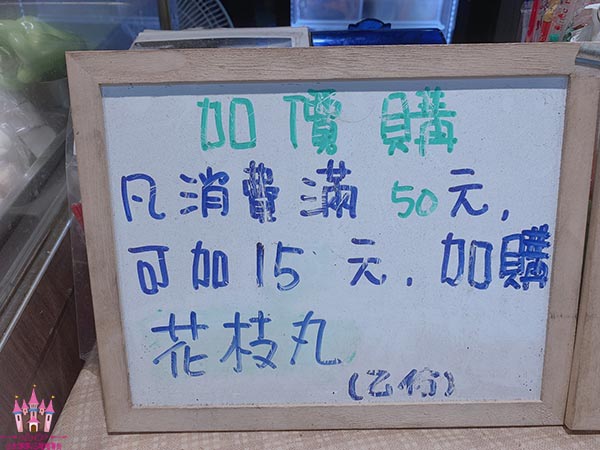 加價購
凡消費滿50元,
可加15元.加購
花枝丸
(乙份)